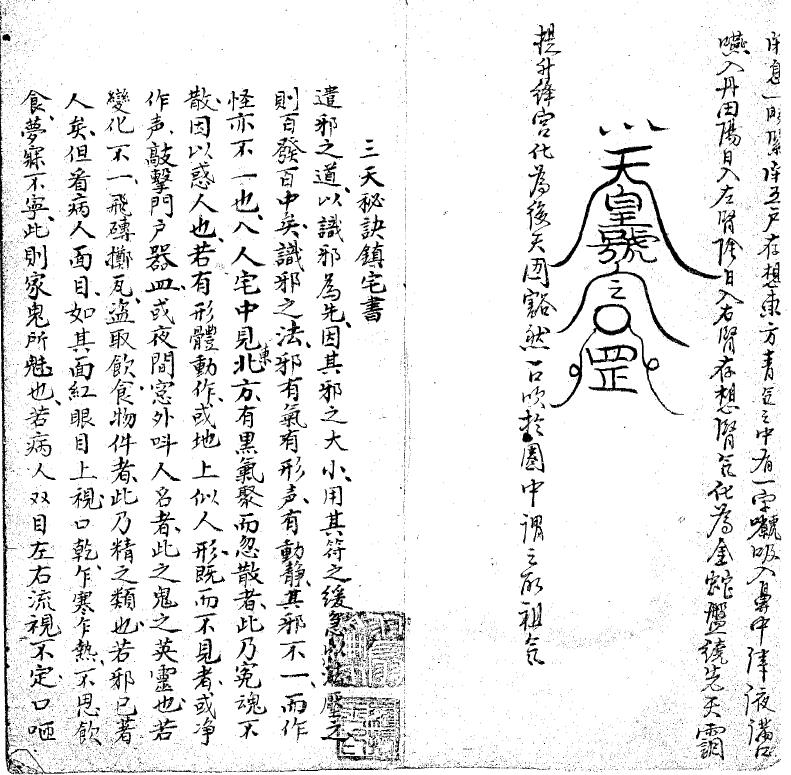 閉息一時緊閉五戶存想東方青炁之中有一字號吸入鼻中津液滿口
嚥入丹田陽日入左腎陰日入右腎存想腎炁化為金蛇盤繞先天
提升絳宮化為後天罡豁然一口吹於圈中謂之取祖炁
天皇號之
罡
三天秘訣鎮宅書
遣邪之道、以識邪為先、因其邪之大小、用其符之緩急
則百發百中矣、識邪之法、邪有氣有形声、有動靜、其邪不一、而作
怪亦不一也、入人宅中、見東北方、有黑氣聚而忽散者、此乃冤魂不
散、因以惑人也、若有形體動作、或地上似人形、既而不見者、或净
作声、敲擊門户器皿、或夜間窓外呌人名者、此之鬼之英靈也、若
變化不一、飛磚擲瓦、盜取飲食物件者、此乃精之類也、若邪已著
人矣、但看病人面目、如其面紅眼目上視、口乾、乍寒乍熱、不思飲
食、夢寐不寧、此則家鬼所魅也、若病人双目左右流視、不定口咂